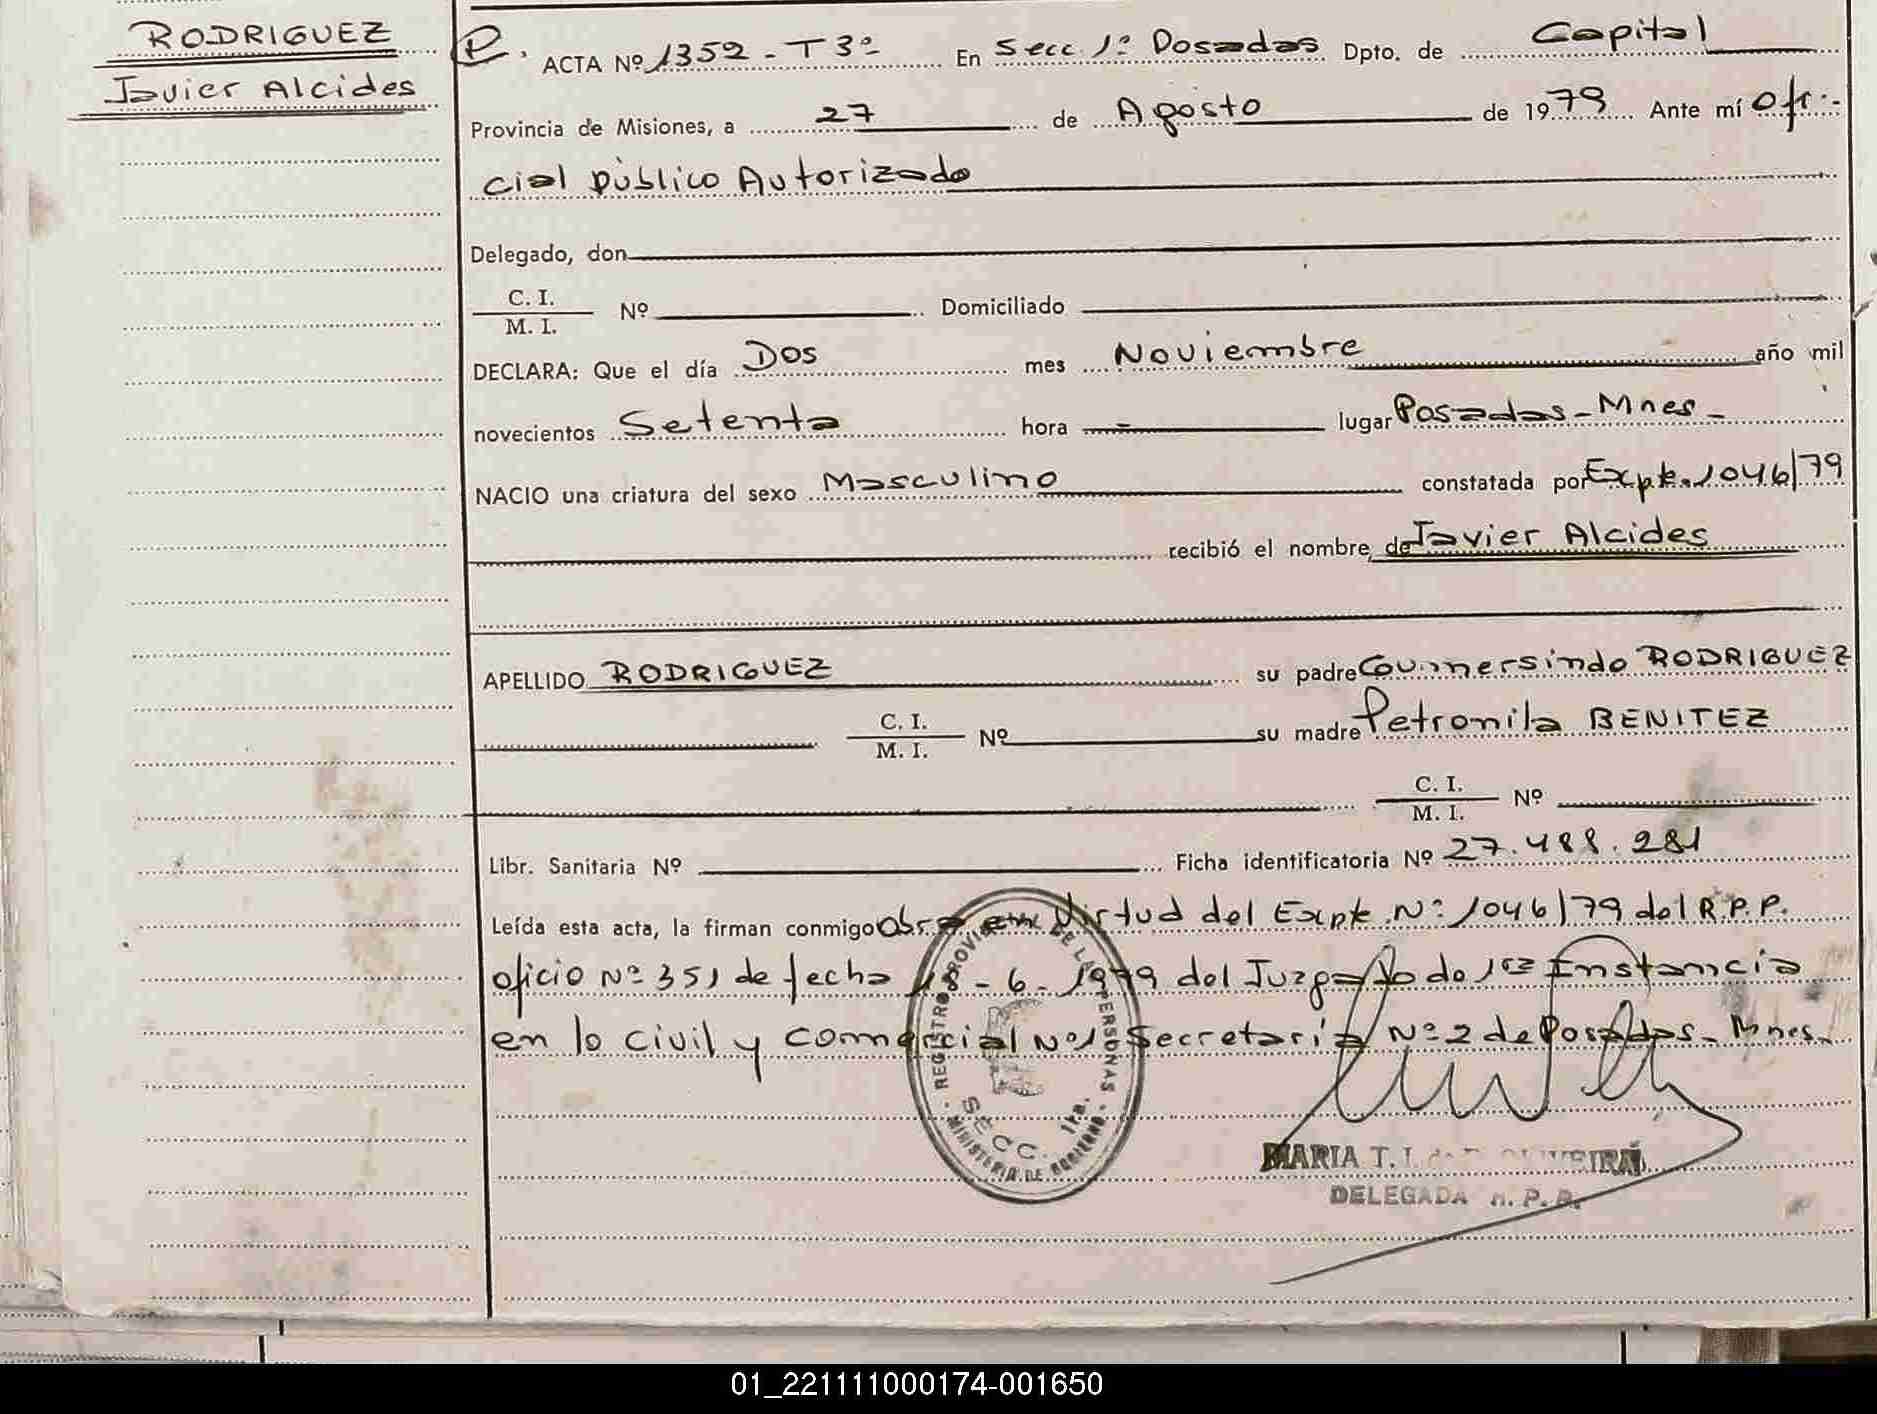 RODRIGUEZ
Javier Alcides
P. ACTA Nº 1352 - T 3º En Secc. 1º Posadas Dpto. de Capital
Provincia de Misiones, a 27 de Agosto de 1979 Ante mí Ofi-
cial público Autorizado
Delegado, don
C. I.
M. I. Nº Domiciliado
DECLARA: Que el día Dos mes Noviembre año mil
novecientos Setenta hora - lugar Posadas - Mnes -
NACIO una criatura del sexo Masculino constatada por Expte. 1046/79
recibió el nombre de Javier Alcides
APELLIDO RODRIGUEZ su padre Goumersindo RODRIGUEZ
C. I.
M. I. Nº su madre Petronila BENITEZ
C. I.
M. I. Nº
Libr. Sanitaria Nº Ficha identificatoria Nº 27.488.281
Leída esta acta, la firman conmigo Obra en Virtud del Expte Nº 1046/79 del R.P.P.
oficio Nº 351 de fecha 18 - 6 - 1979 del Juzgado de 1ra Instancia
en lo Civil y comercial Nº 1 Secretaría Nº 2 de Posadas - Mnes -
REGISTRO PROVINCIAL DE LAS PERSONAS
SECC. 1ra.
MINISTERIO DE GOBIERNO
MARIA T. OLIVEIRA
DELEGADA R. P. P.
01_221111000174-001650